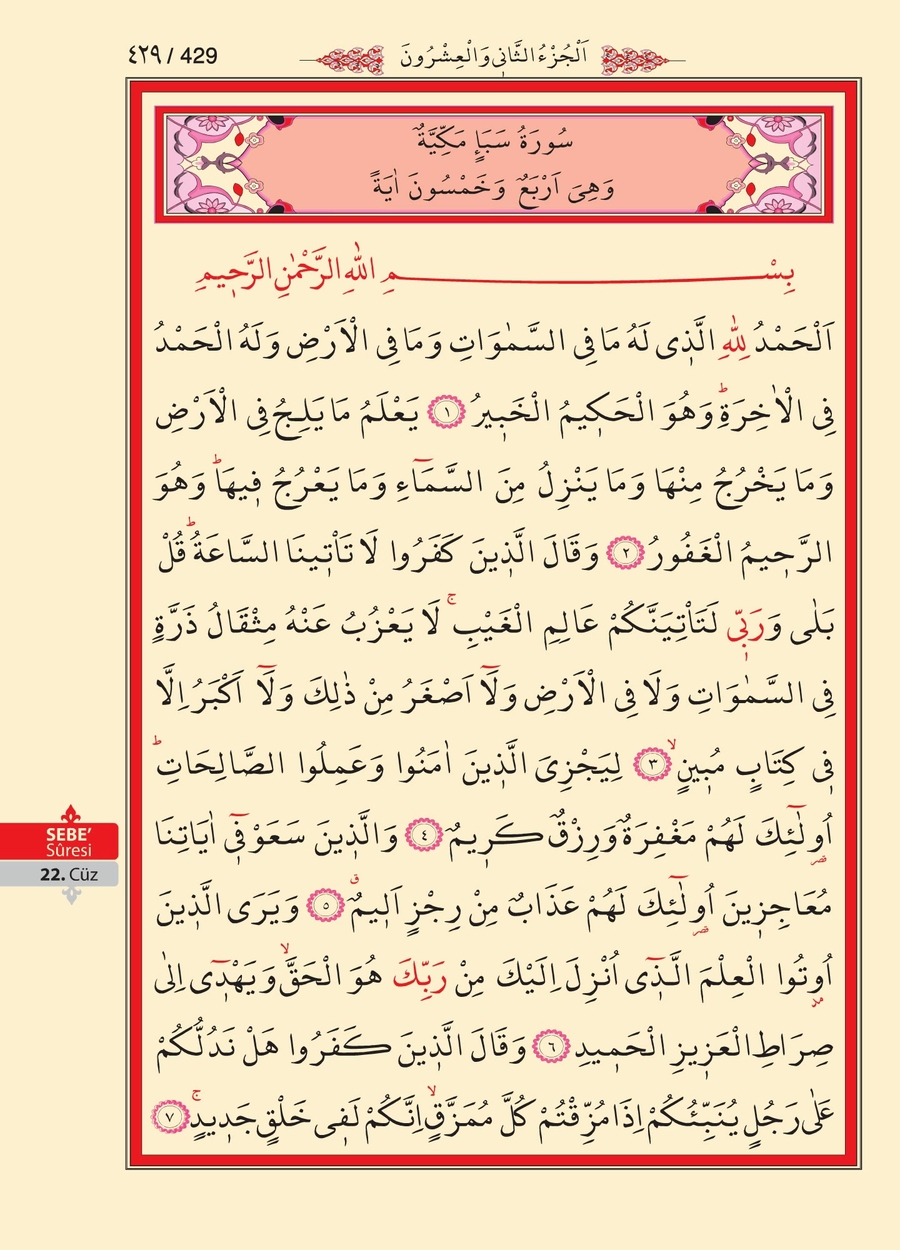 ٤٢٩ / 429
اَلْجُزْءُ الثَّانِى وَالْعِشْرُونَ
سُورَةُ سَبَإٍ مَكِّيَّةٌ
وَهِىَ اَرْبَعٌ وَخَمْسُونَ اٰيَةً
بِسْمِ اللهِ الرَّحْمٰنِ الرَّحٖيمِ
اَلْحَمْدُ لِلهِ الَّذٖى لَهُ مَا فِى السَّمٰوَاتِ وَمَا فِى الْاَرْضِ وَلَهُ الْحَمْدُ
فِى الْاٰخِرَةِؕ وَهُوَ الْحَكٖيمُ الْخَبٖيرُ ﴿١﴾ يَعْلَمُ مَا يَلِجُ فِى الْاَرْضِ
وَمَا يَخْرُجُ مِنْهَا وَمَا يَنْزِلُ مِنَ السَّمَٓاءِ وَمَا يَعْرُجُ فٖيهَاؕ وَهُوَ
الرَّحٖيمُ الْغَفُورُ ﴿٢﴾ وَقَالَ الَّذٖينَ كَفَرُوا لَا تَاْتٖينَا السَّاعَةُؕ قُلْ
بَلٰى وَرَبّٖى لَتَاْتِيَنَّكُمْ عَالِمِ الْغَيْبِۚ لَا يَعْزُبُ عَنْهُ مِثْقَالُ ذَرَّةٍ
فِى السَّمٰوَاتِ وَلَا فِى الْاَرْضِ وَلَٓا اَصْغَرُ مِنْ ذٰلِكَ وَلَٓا اَكْبَرُ اِلَّا
فٖى كِتَابٍ مُبٖينٍۙ ﴿٣﴾ لِيَجْزِىَ الَّذٖينَ اٰمَنُوا وَعَمِلُوا الصَّالِحَاتِؕ
اُو۬لٰٓئِكَ لَهُمْ مَغْفِرَةٌ وَرِزْقٌ كَرٖيمٌ ﴿٤﴾ وَالَّذٖينَ سَعَوْ فٖٓى اٰيَاتِنَا
مُعَاجِزٖينَ اُو۬لٰٓئِكَ لَهُمْ عَذَابٌ مِنْ رِجْزٍ اَلٖيمٌ ﴿٥﴾ وَيَرَى الَّذٖينَ
اُوتُوا الْعِلْمَ الَّذٖٓى اُنْزِلَ اِلَيْكَ مِنْ رَبِّكَ هُوَ الْحَقَّۙ وَيَهْدٖٓى اِلٰى
صِرَاطِ الْعَزٖيزِ الْحَمٖيدِ ﴿٦﴾ وَقَالَ الَّذٖينَ كَفَرُوا هَلْ نَدُلُّكُمْ
عَلٰى رَجُلٍ يُنَبِّئُكُمْ اِذَا مُزِّقْتُمْ كُلَّ مُمَزَّقٍۙ اِنَّكُمْ لَفٖى خَلْقٍ جَدٖيدٍۚ ﴿٧﴾
SEBE’
Sûresi
22. Cüz